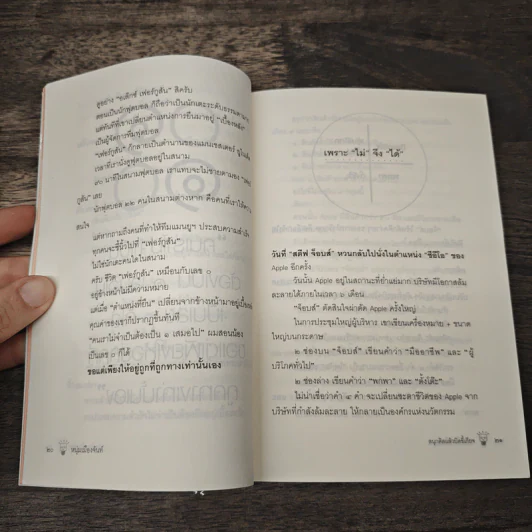 ดูอย่าง “อเล็กซ์ เฟอร์กูสัน” สิครับ
ตอนเป็นนักฟุตบอล ก็ถือว่าเป็นนักเตะระดับธรรมดา
แต่ทันทีที่เขาเปลี่ยนตำแหน่งการยืนมาอยู่ “เบื้องหลัง”
เป็นผู้จัดการทีมฟุตบอล
“เฟอร์กูสัน” ก็กลายเป็นตำนานของแมนเชสเตอร์ ยูไนเต็ด
เวลาที่เรานั่งดูฟุตบอลอยู่ในสนาม
๙๐ นาทีในสนามฟุตบอล เราแทบจะไม่ชายตามอง “เฟอร์
กูสัน” เลย
นักฟุตบอล ๒๒ คนในสนามต่างหาก คือคนที่เราให้ความ
สนใจ
แต่หากถามถึงคนที่ทำให้ทีมแมนยูฯ ประสบความสำเร็จ
ทุกคนจะชี้นิ้วไปที่ “เฟอร์กูสัน”
ไม่ใช่นักเตะคนใดในสนาม
ครับ ชีวิต “เฟอร์กูสัน” เหมือนกับเลข ๐
อยู่ข้างหน้าไม่มีความหมาย
แต่เมื่อ “ตำแหน่งที่ยืน” เปลี่ยนจากข้างหน้ามาอยู่เบื้องหลัง
คุณค่าของเขาก็ปรากฏขึ้นทันที
“คนเราไม่จำเป็นต้องเป็น ๑ เสมอไป” ผมสอนน้อง
เป็นเลข ๐ ก็ได้
ขอแต่เพียงให้อยู่ถูกที่ถูกทางเท่านั้นเอง
๒๐ หนุ่มเมืองจันท์
เพราะ “ไม่” จึง “ได้”
วันที่ “สตีฟ จ็อบส์” หวนกลับไปนั่งในตำแหน่ง “ซีอีโอ” ของ
Apple อีกครั้ง
วันนั้น Apple อยู่ในสถานะที่ย่ำแย่มาก บริษัทมีโอกาสล้ม
ละลายได้ภายในเวลา ๖ เดือน
“จ็อบส์” ตัดสินใจผ่าตัด Apple ครั้งใหญ่
ในการประชุมใหญ่ผู้บริหาร เขาเขียนเครื่องหมาย + ขนาด
ใหญ่บนกระดาษ
๒ ช่องบน “จ็อบส์” เขียนคำว่า “มืออาชีพ” และ “ผู้
บริโภคทั่วไป”
๒ ช่องล่าง เขียนคำว่า “พกพา” และ “ตั้งโต๊ะ”
ไม่น่าเชื่อว่าคำ ๔ คำ จะเปลี่ยนชะตาชีวิตของ Apple จาก
บริษัทที่กำลังล้มละลาย ให้กลายเป็นองค์กรแห่งนวัตกรรม